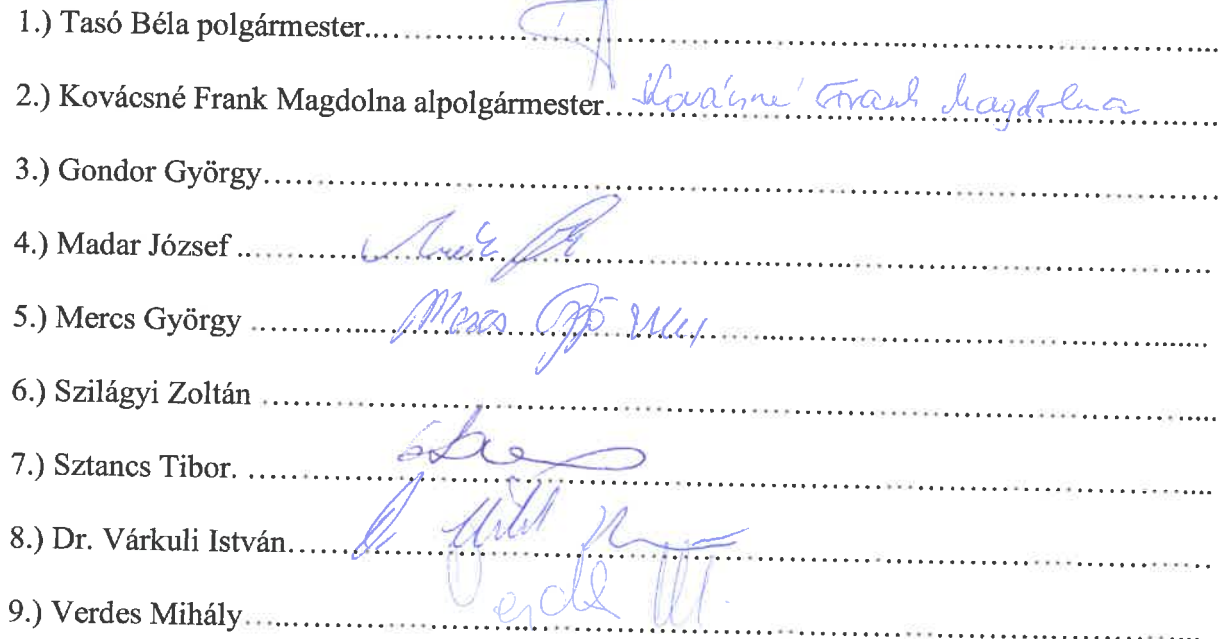 1.) Tasó Béla polgármester....................
2.) Kovácsné Frank Magdolna alpolgármester.... Kovácsné Frank Magdolna
3.) Gondor György....................
4.) Madar József ....................
5.) Mercs György .................... Mercs György
6.) Szilágyi Zoltán ....................
7.) Sztancs Tibor. ....................
8.) Dr. Várkuli István....................
9.) Verdes Mihály....................